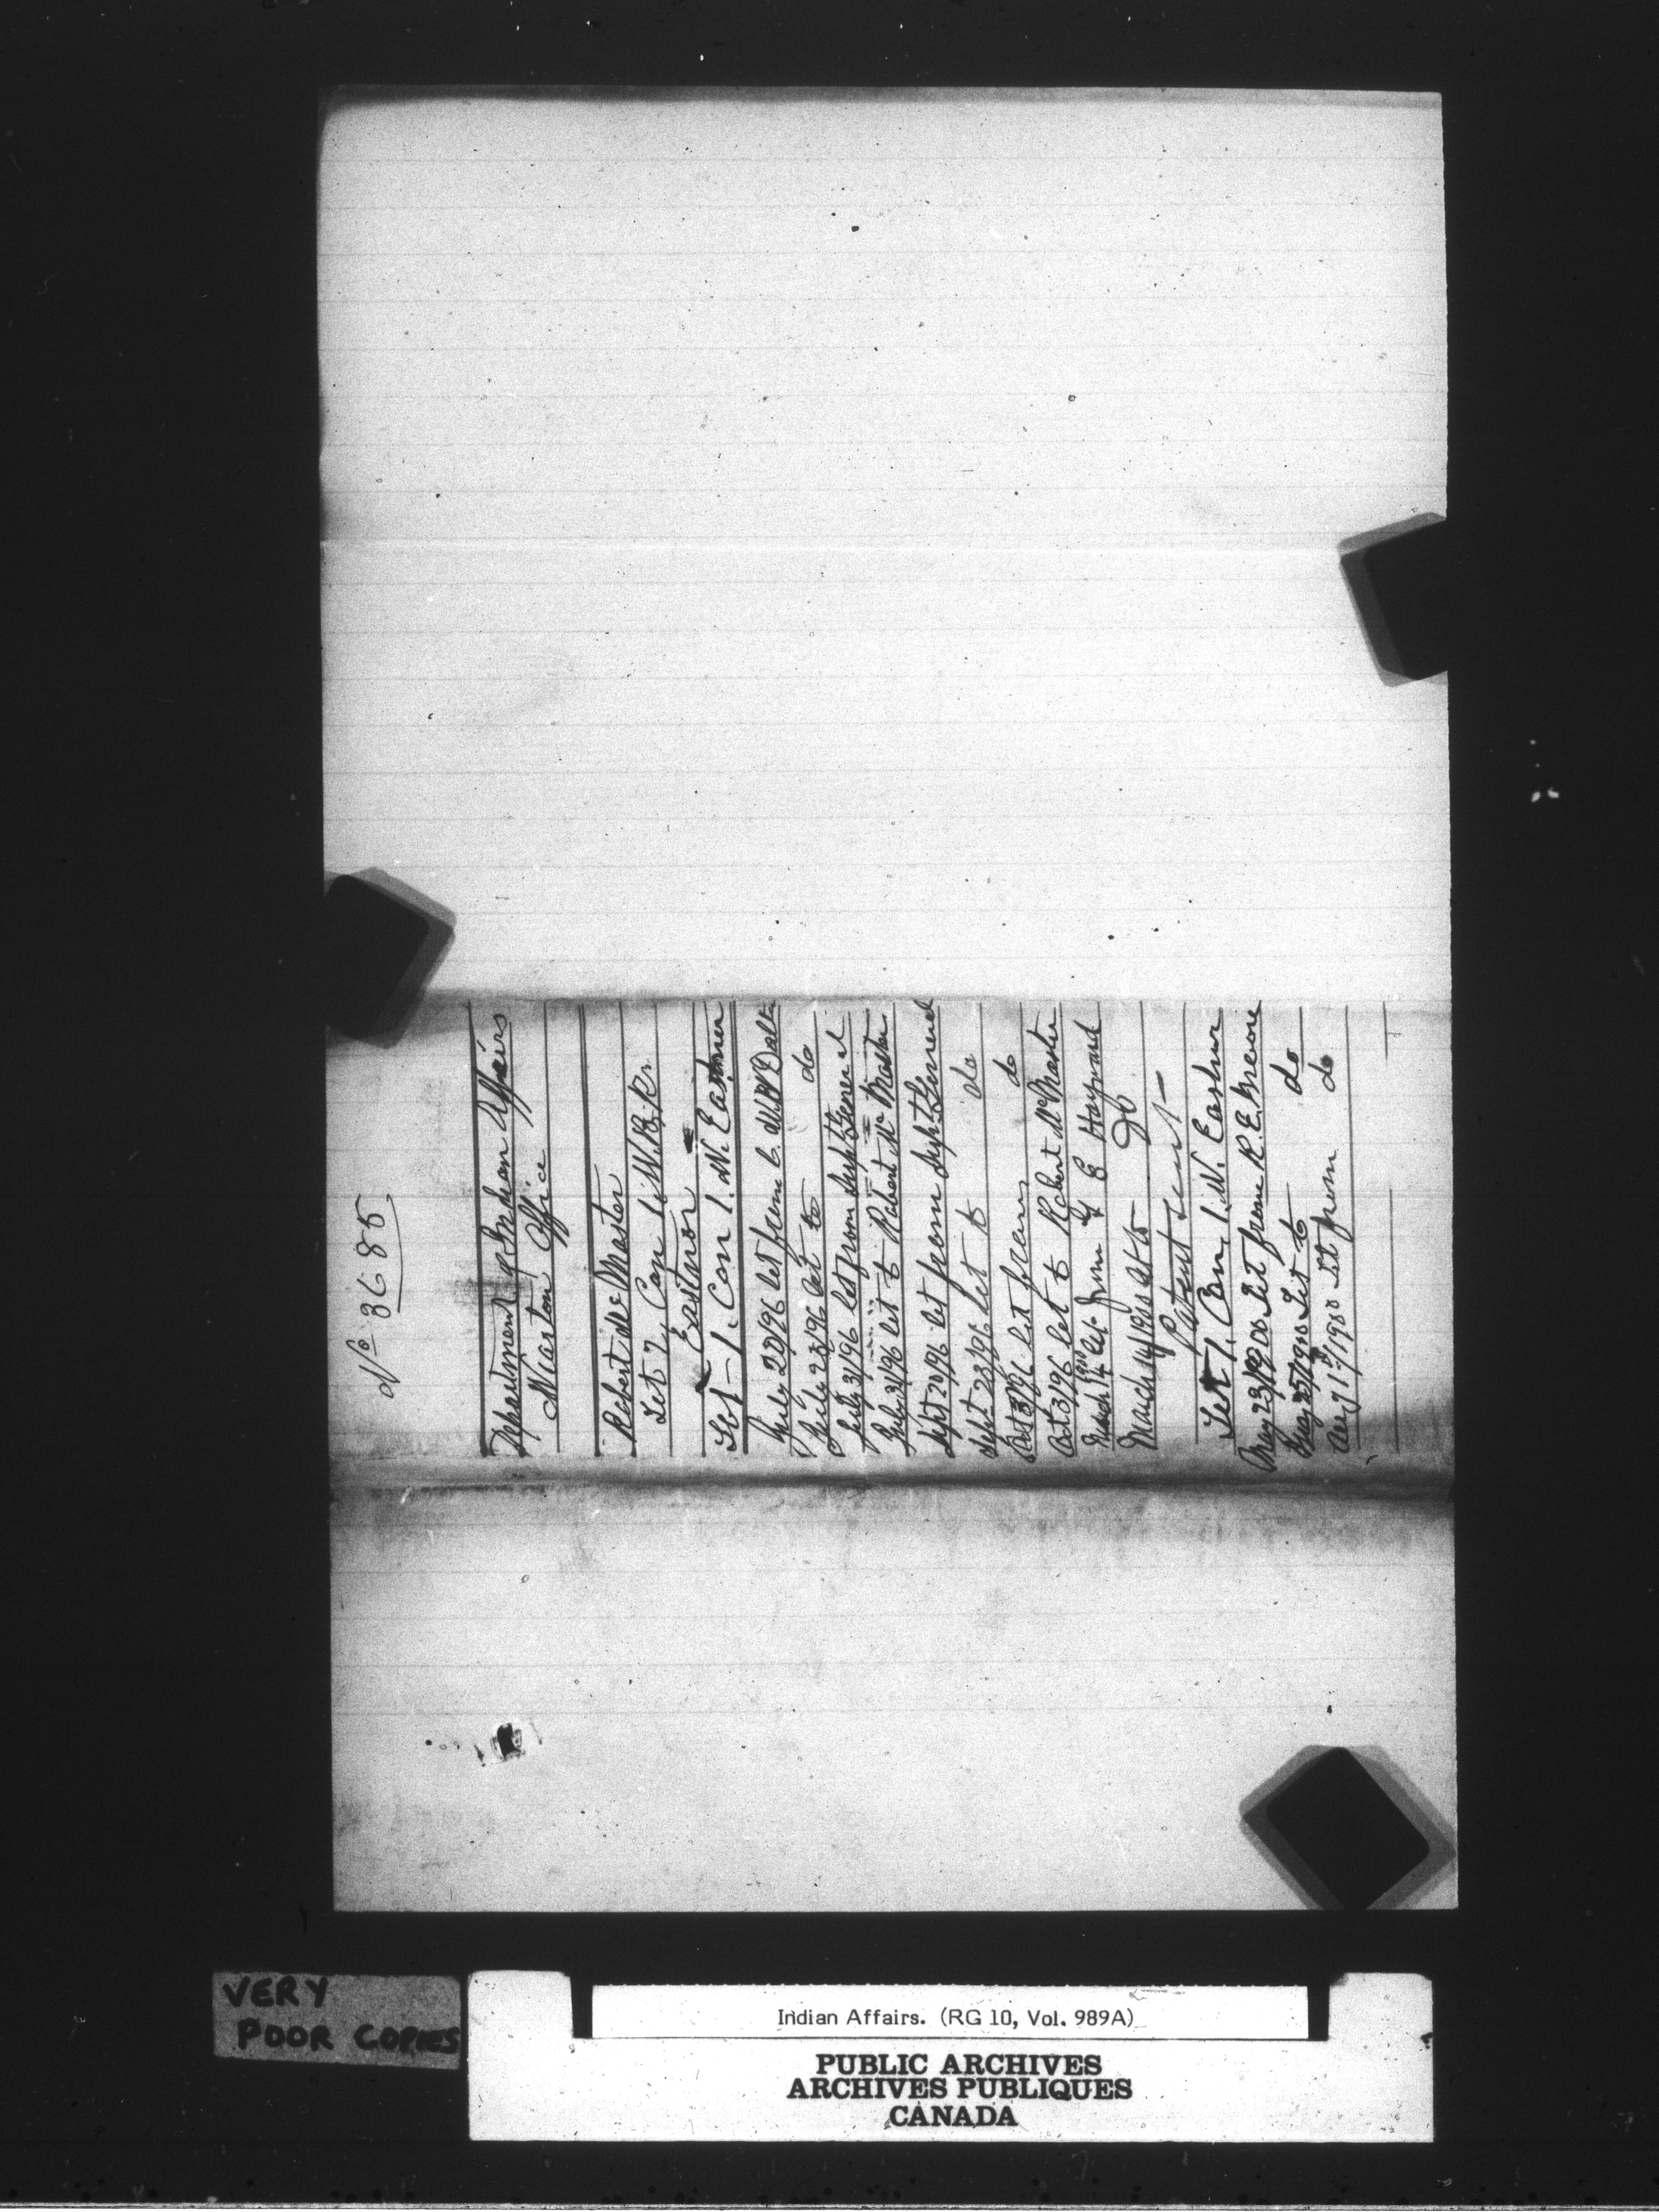 No 3685
Department of Indian Affairs
Wiarton Office
Robert McMaster
Lot 7, Con 1, W.B.R.
Eastnor
Lot 1. Con 1. W. Eastnor
July 22/96 let from C. McN Dalton
July 23/96 let to do
July 31/96 let from Supt General
July 31/96 let to Robert McMaster
Sept 20/96 let from Supt General
Sept 23/96 let to do
Oct 3/96 let from do
Oct 3/96 let to Robert McMaster
March 14 1900 let from G E Hayward
March 14/1900 let to Do
Patent sent
Lot 1, Con, 1. W. Eastnor
May 23/1900 let from R. E. Greene
May 25/1900 Let to do
Aug 1st/1900 Let from do
VERY
POOR COPIES
Indian Affairs. (RG 10, Vol. 989A)
PUBLIC ARCHIVES
ARCHIVES PUBLIQUES
CANADA